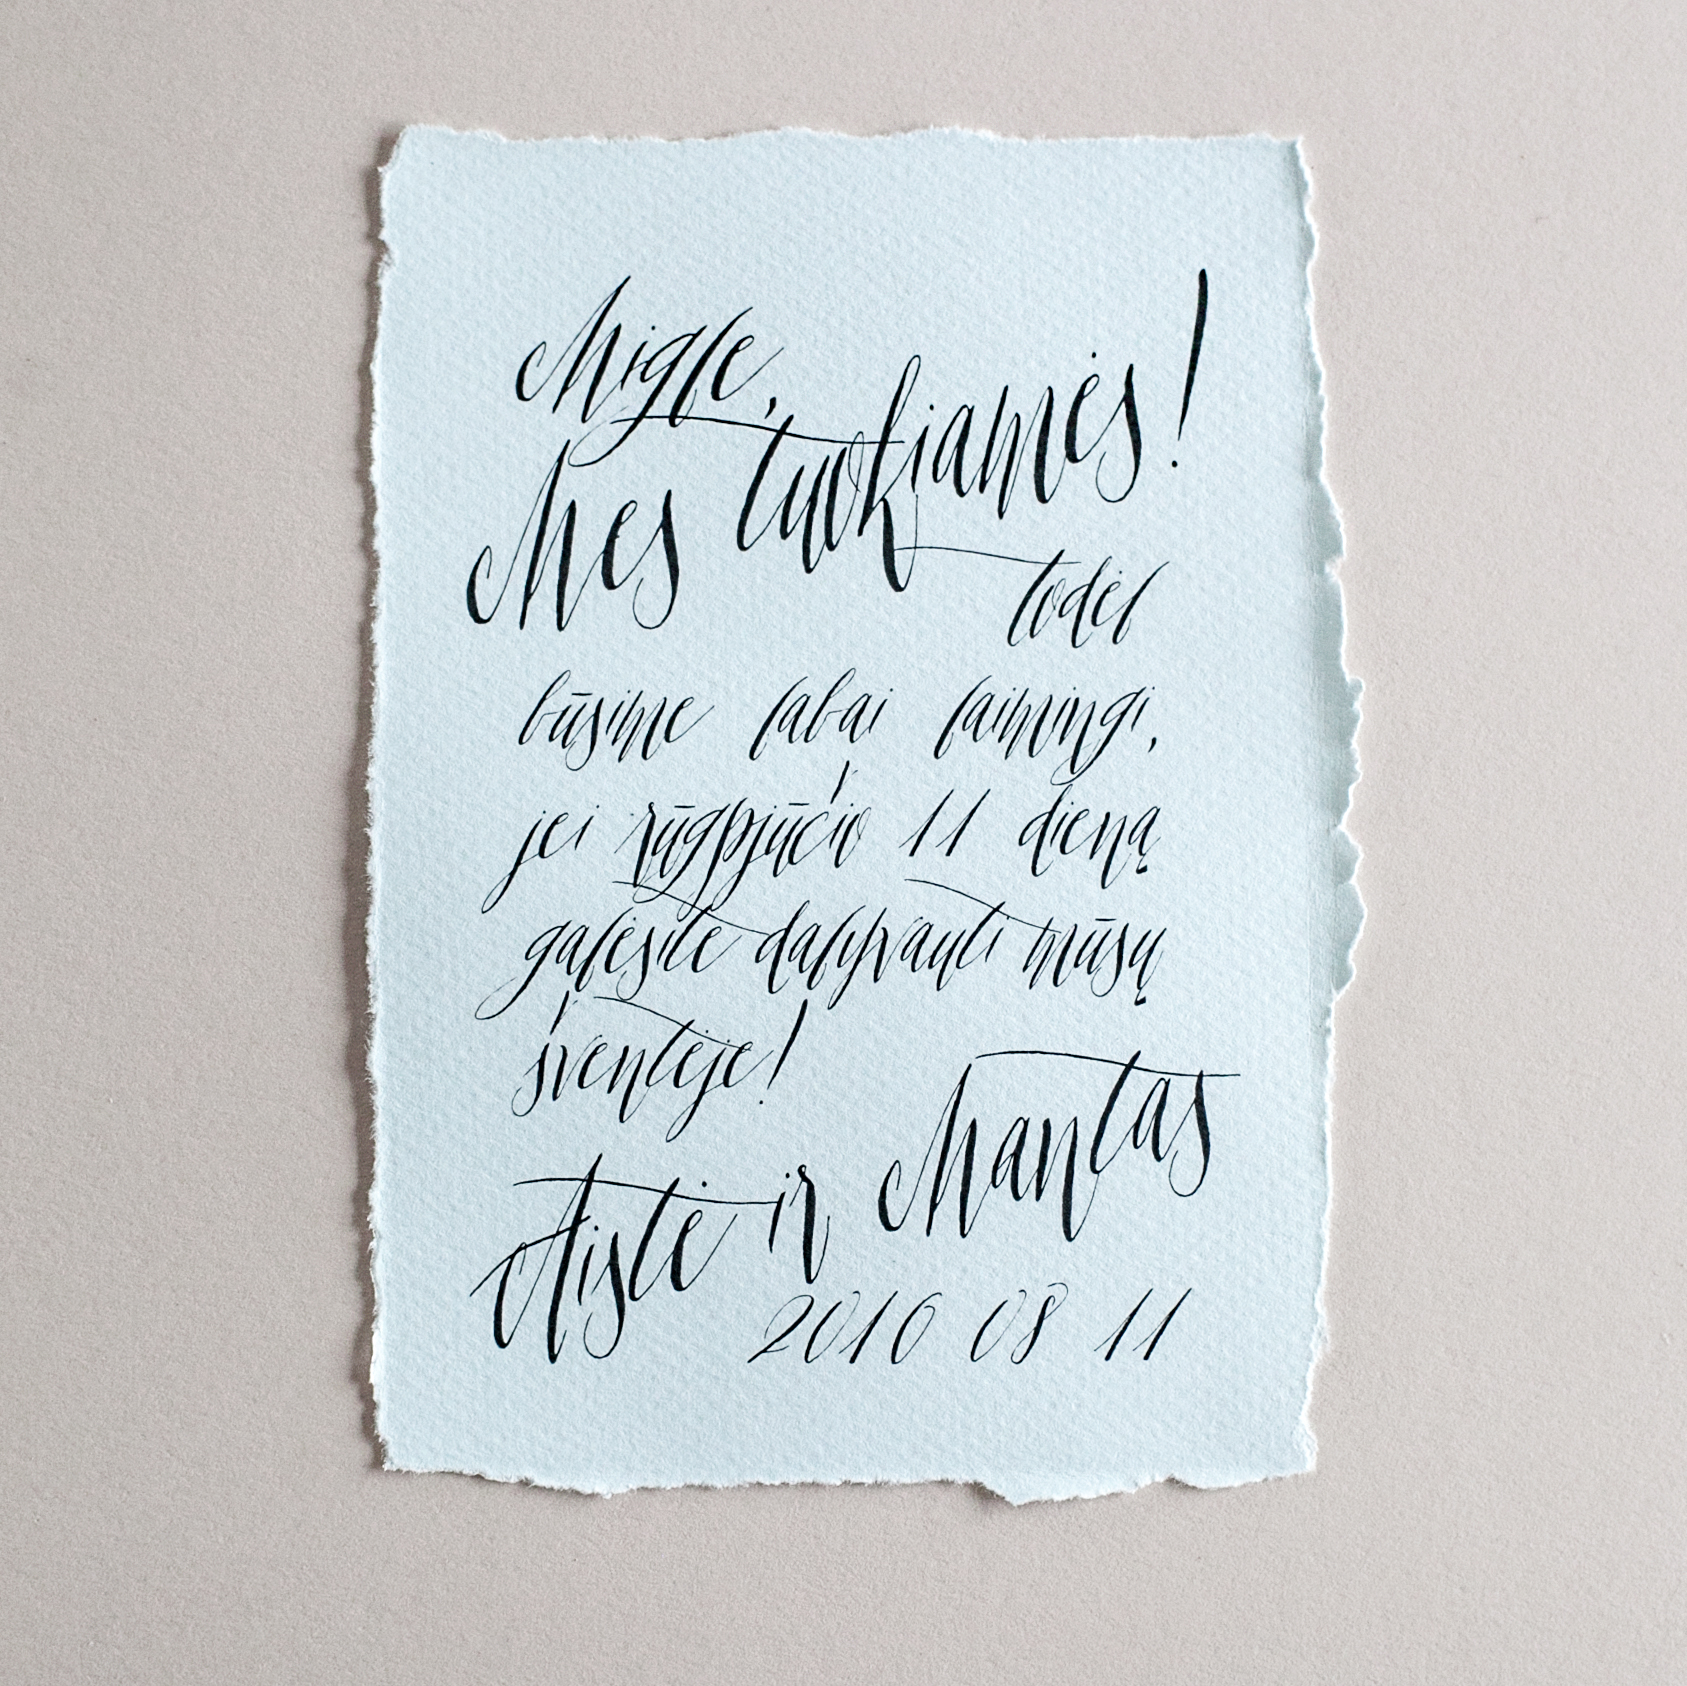 Migle,
Mes tuokiamės!
todėl
būsime labai laimingi,
jei rūgpjūčio 11 dieną
galėsite dalyvauti mūsų
šventėje!
Aistė ir Mantas
2016 08 11